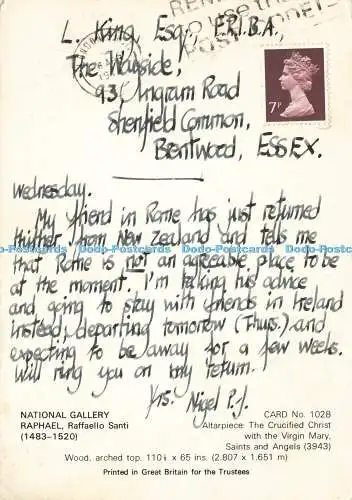 L. King, Esq., F.R.I.B.A.,
The Wayside,
93 Ingram Road
Shenfield Common,
Brentwood, ESSEX.
REME
to use the
POSTCODE
7P
Wednesday.
My friend in Rome has just returned
thither from New Zealand and tells me
that Rome is not an agreable place to be
at the moment. I'm taking his advice
and going to stay with friends in Ireland
instead, departing tomorrow (Thurs.) and
expecting to be away for a few weeks.
Will ring you on my return.
Yrs. Nigel P.J.
NATIONAL GALLERY
RAPHAEL, Raffaello Santi
(1483–1520)
CARD No. 1028
Altarpiece: The Crucified Christ
with the Virgin Mary,
Saints and Angels (3943)
Wood, arched top. 110½ x 65 ins. (2.807 x 1.651 m)
Printed in Great Britain for the Trustees
Dodo-Postcards Dodo-Postcards Dodo-Postcards